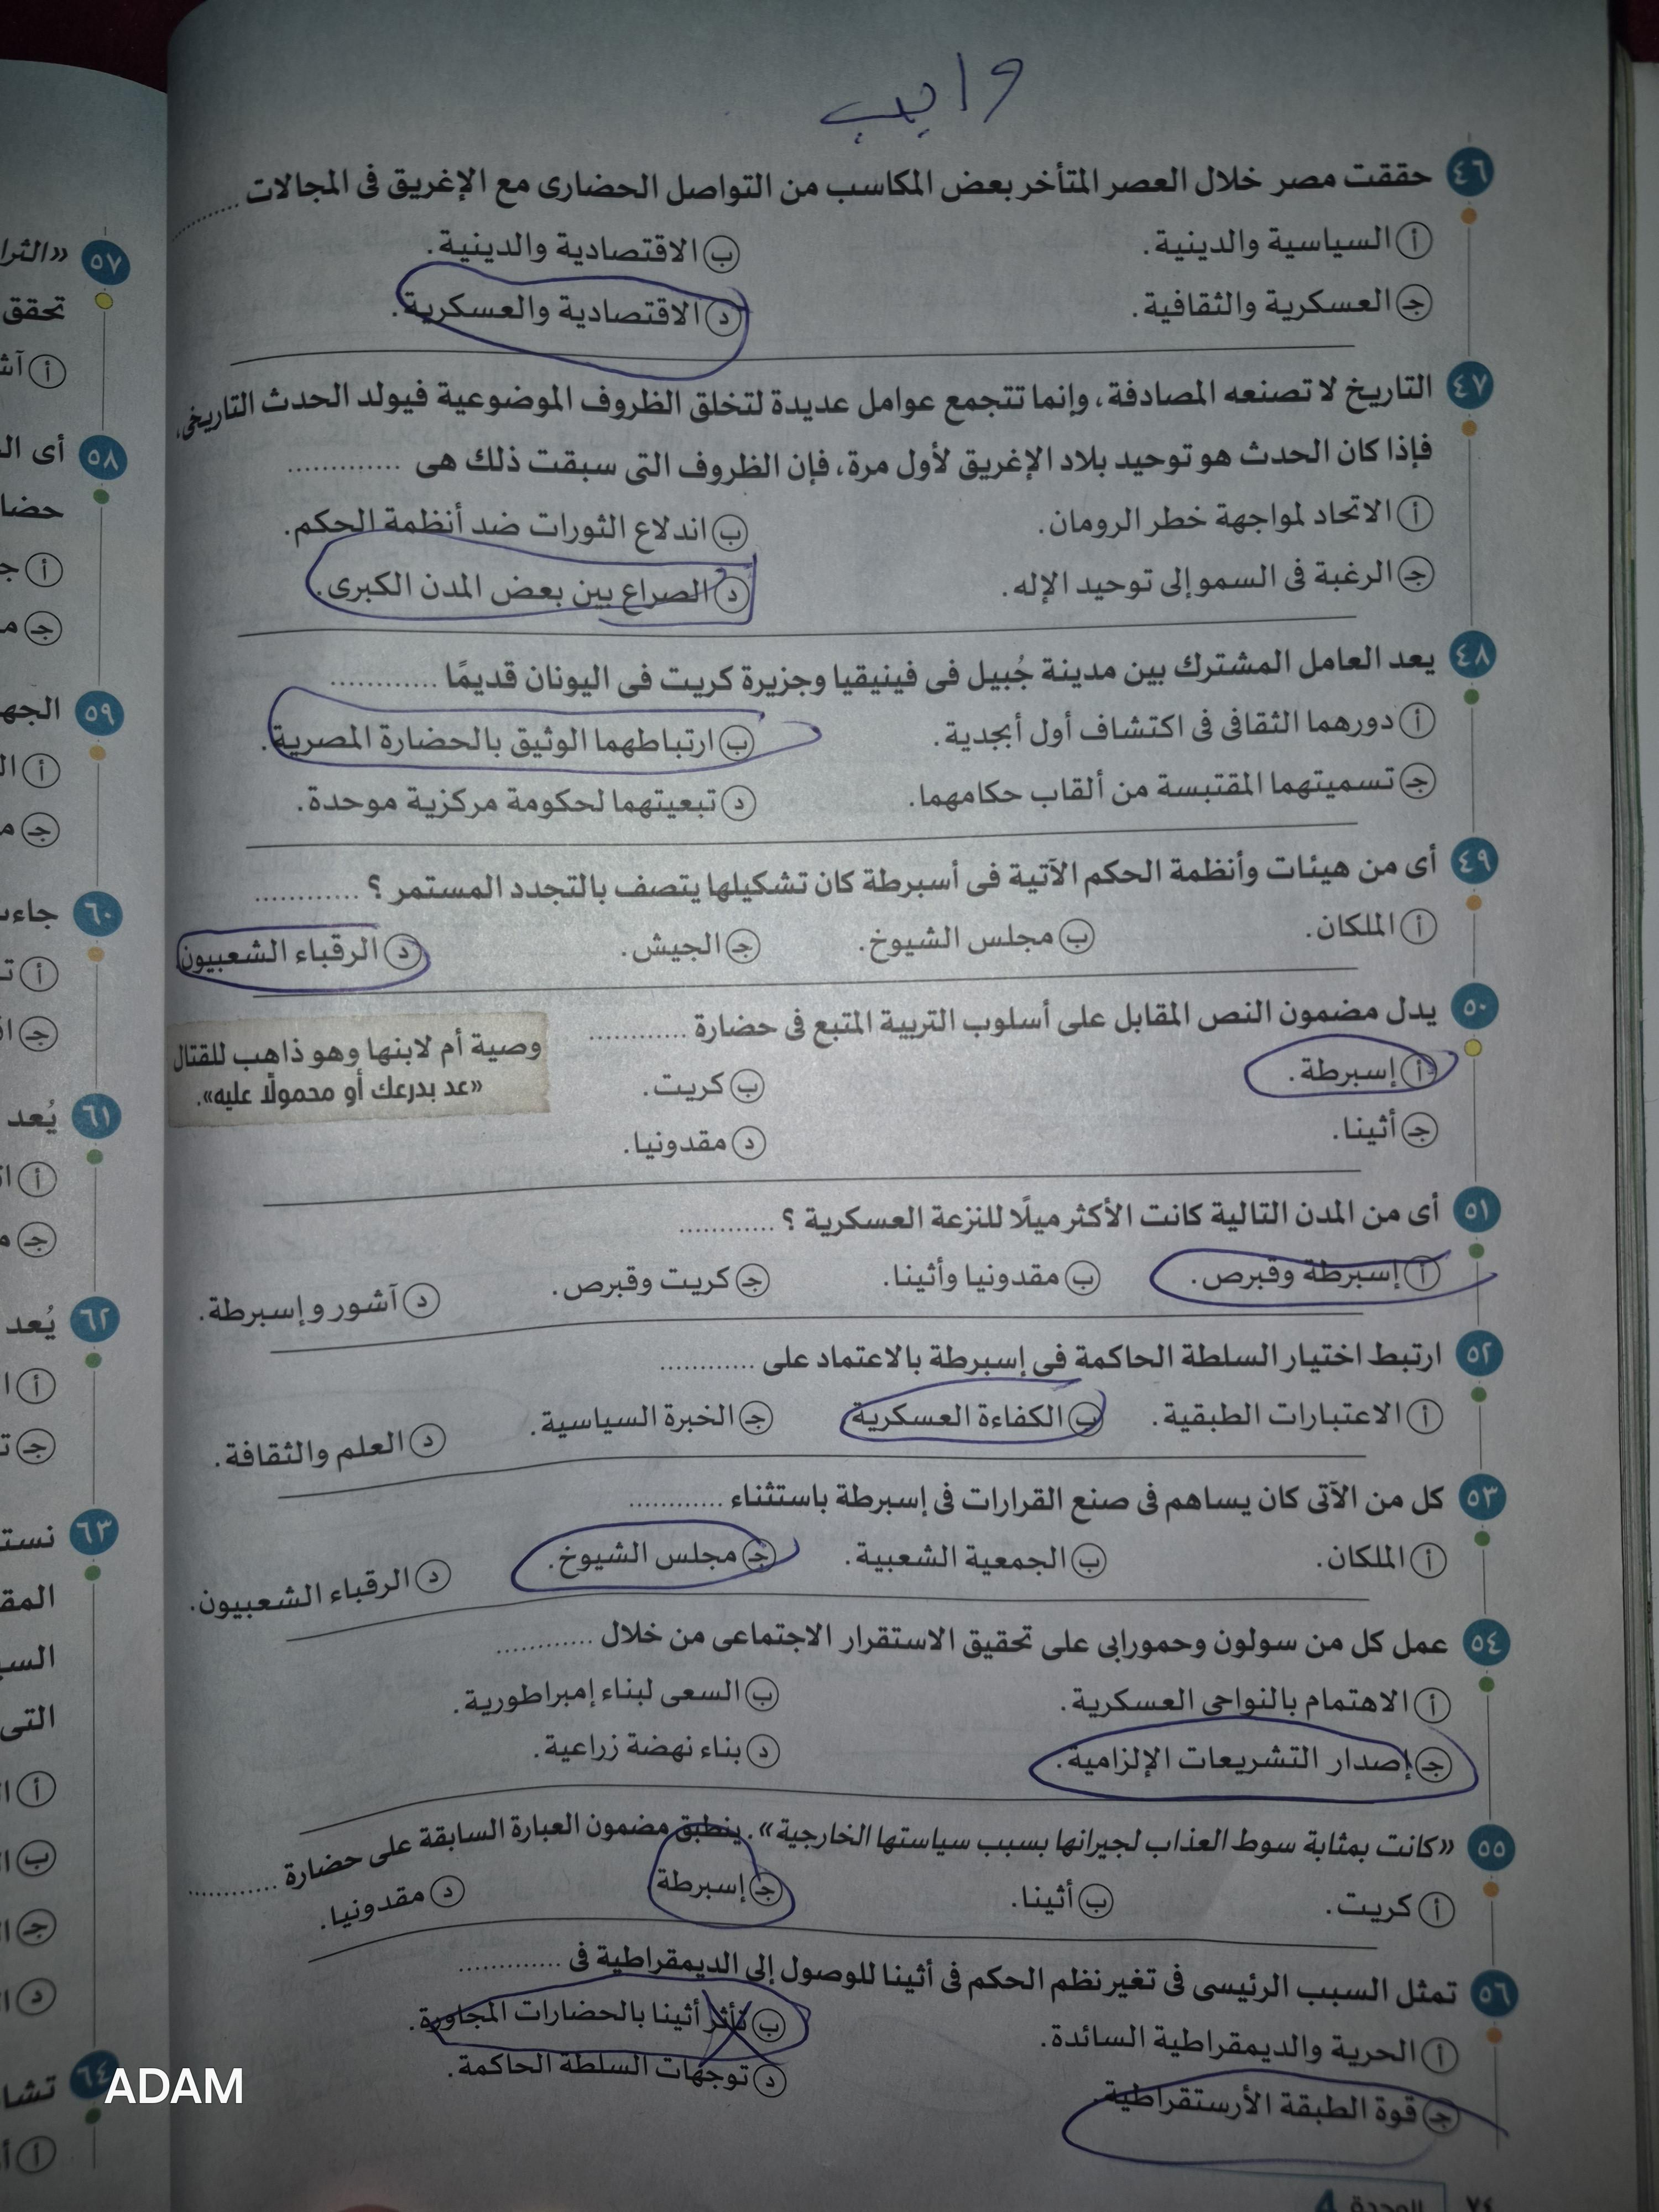 واجب
٤٦ حققت مصر خلال العصر المتأخر بعض المكاسب من التواصل الحضارى مع الإغريق فى المجالات ............
أ السياسية والدينية. ب الاقتصادية والدينية.
ج العسكرية والثقافية. د الاقتصادية والعسكرية.
٤٧ التاريخ لا تصنعه المصادفة، وإنما تتجمع عوامل عديدة لتخلق الظروف الموضوعية فيولد الحدث التاريخى،
فإذا كان الحدث هو توحيد بلاد الإغريق لأول مرة، فإن الظروف التى سبقت ذلك هى ............
أ الاتحاد لمواجهة خطر الرومان. ب اندلاع الثورات ضد أنظمة الحكم.
ج الرغبة فى السمو إلى توحيد الإله. د الصراع بين بعض المدن الكبرى.
٤٨ يعد العامل المشترك بين مدينة جُبيل فى فينيقيا وجزيرة كريت فى اليونان قديمًا ............
أ دورهما الثقافى فى اكتشاف أول أبجدية. ب ارتباطهما الوثيق بالحضارة المصرية.
ج تسميتهما المقتبسة من ألقاب حكامهما. د تبعيتهما لحكومة مركزية موحدة.
٤٩ أى من هيئات وأنظمة الحكم الآتية فى أسبرطة كان تشكيلها يتصف بالتجدد المستمر ؟ ............
أ الملكان. ب مجلس الشيوخ. ج الجيش. د الرقباء الشعبيون
٥٠ يدل مضمون النص المقابل على أسلوب التربية المتبع فى حضارة ............
وصية أم لابنها وهو ذاهب للقتال
«عد بدرعك أو محمولًا عليه».
أ إسبرطة. ب كريت.
ج أثينا. د مقدونيا.
٥١ أى من المدن التالية كانت الأكثر ميلًا للنزعة العسكرية ؟ ............
أ إسبرطة وقبرص. ب مقدونيا وأثينا. ج كريت وقبرص. د آشور وإسبرطة.
٥٢ ارتبط اختيار السلطة الحاكمة فى إسبرطة بالاعتماد على ............
أ الاعتبارات الطبقية. ب الكفاءة العسكرية ج الخبرة السياسية. د العلم والثقافة.
٥٣ كل من الآتى كان يساهم فى صنع القرارات فى إسبرطة باستثناء ............
أ الملكان. ب الجمعية الشعبية. ج مجلس الشيوخ. د الرقباء الشعبيون.
٥٤ عمل كل من سولون وحمورابى على تحقيق الاستقرار الاجتماعى من خلال ............
أ الاهتمام بالنواحى العسكرية. ب السعى لبناء إمبراطورية.
ج إصدار التشريعات الإلزامية. د بناء نهضة زراعية.
٥٥ «كانت بمثابة سوط العذاب لجيرانها بسبب سياستها الخارجية». ينطبق مضمون العبارة السابقة على حضارة ............
أ كريت. ب أثينا. ج إسبرطة د مقدونيا.
٥٦ تمثل السبب الرئيسى فى تغير نظم الحكم فى أثينا للوصول إلى الديمقراطية فى ............
أ الحرية والديمقراطية السائدة. ب تأثر أثينا بالحضارات المجاورة.
ج قوة الطبقة الأرستقراطية. د توجهات السلطة الحاكمة.
٧٤ الوحدة 4
٥٧ «الثرا
تحقق
أ آش
٥٨ أى ال
حضا
أ ج
ج م
٥٩ الجه
أ ال
ج م
٦٠ جاءت
أ ت
ج ا
٦١ يُعد
أ ا
ج م
٦٢ يُعد
أ ا
ج ت
٦٣ نست
المق
السي
التى
أ ا
ب ا
ج ا
د ا
٦٤ تشا
أ
ADAM